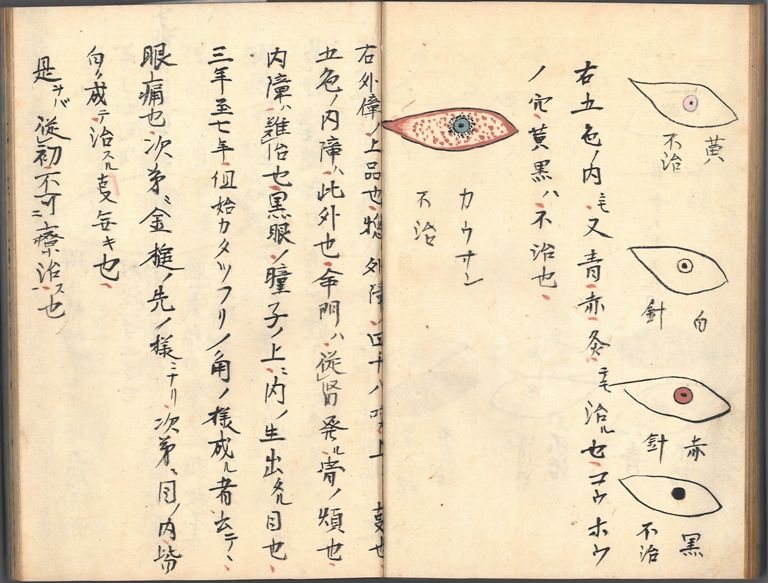 黄
不治
白
針
赤
針
黒
不治
右五色ノ内ニモ又青赤灸ニモ治ル也コウホウ
ノ穴黄黒ハ不治也
カウサン
不治
右外障ノ上品也惣外障ノ四十八
五色ノ内障ハ此外也命門ハ従腎発ル
内障ハ難治也黒眼ノ瞳子ノ上ニ内ノ生出タル目也
三年至七年但始カタツフリノ角ノ様成ル者去テ
眼痛也次第ニ金槌ノ先ノ様ニナリ次第ニ目ノ内皆
白ク成テ治スル事無キ也
是ナバ従初不可療治ス也